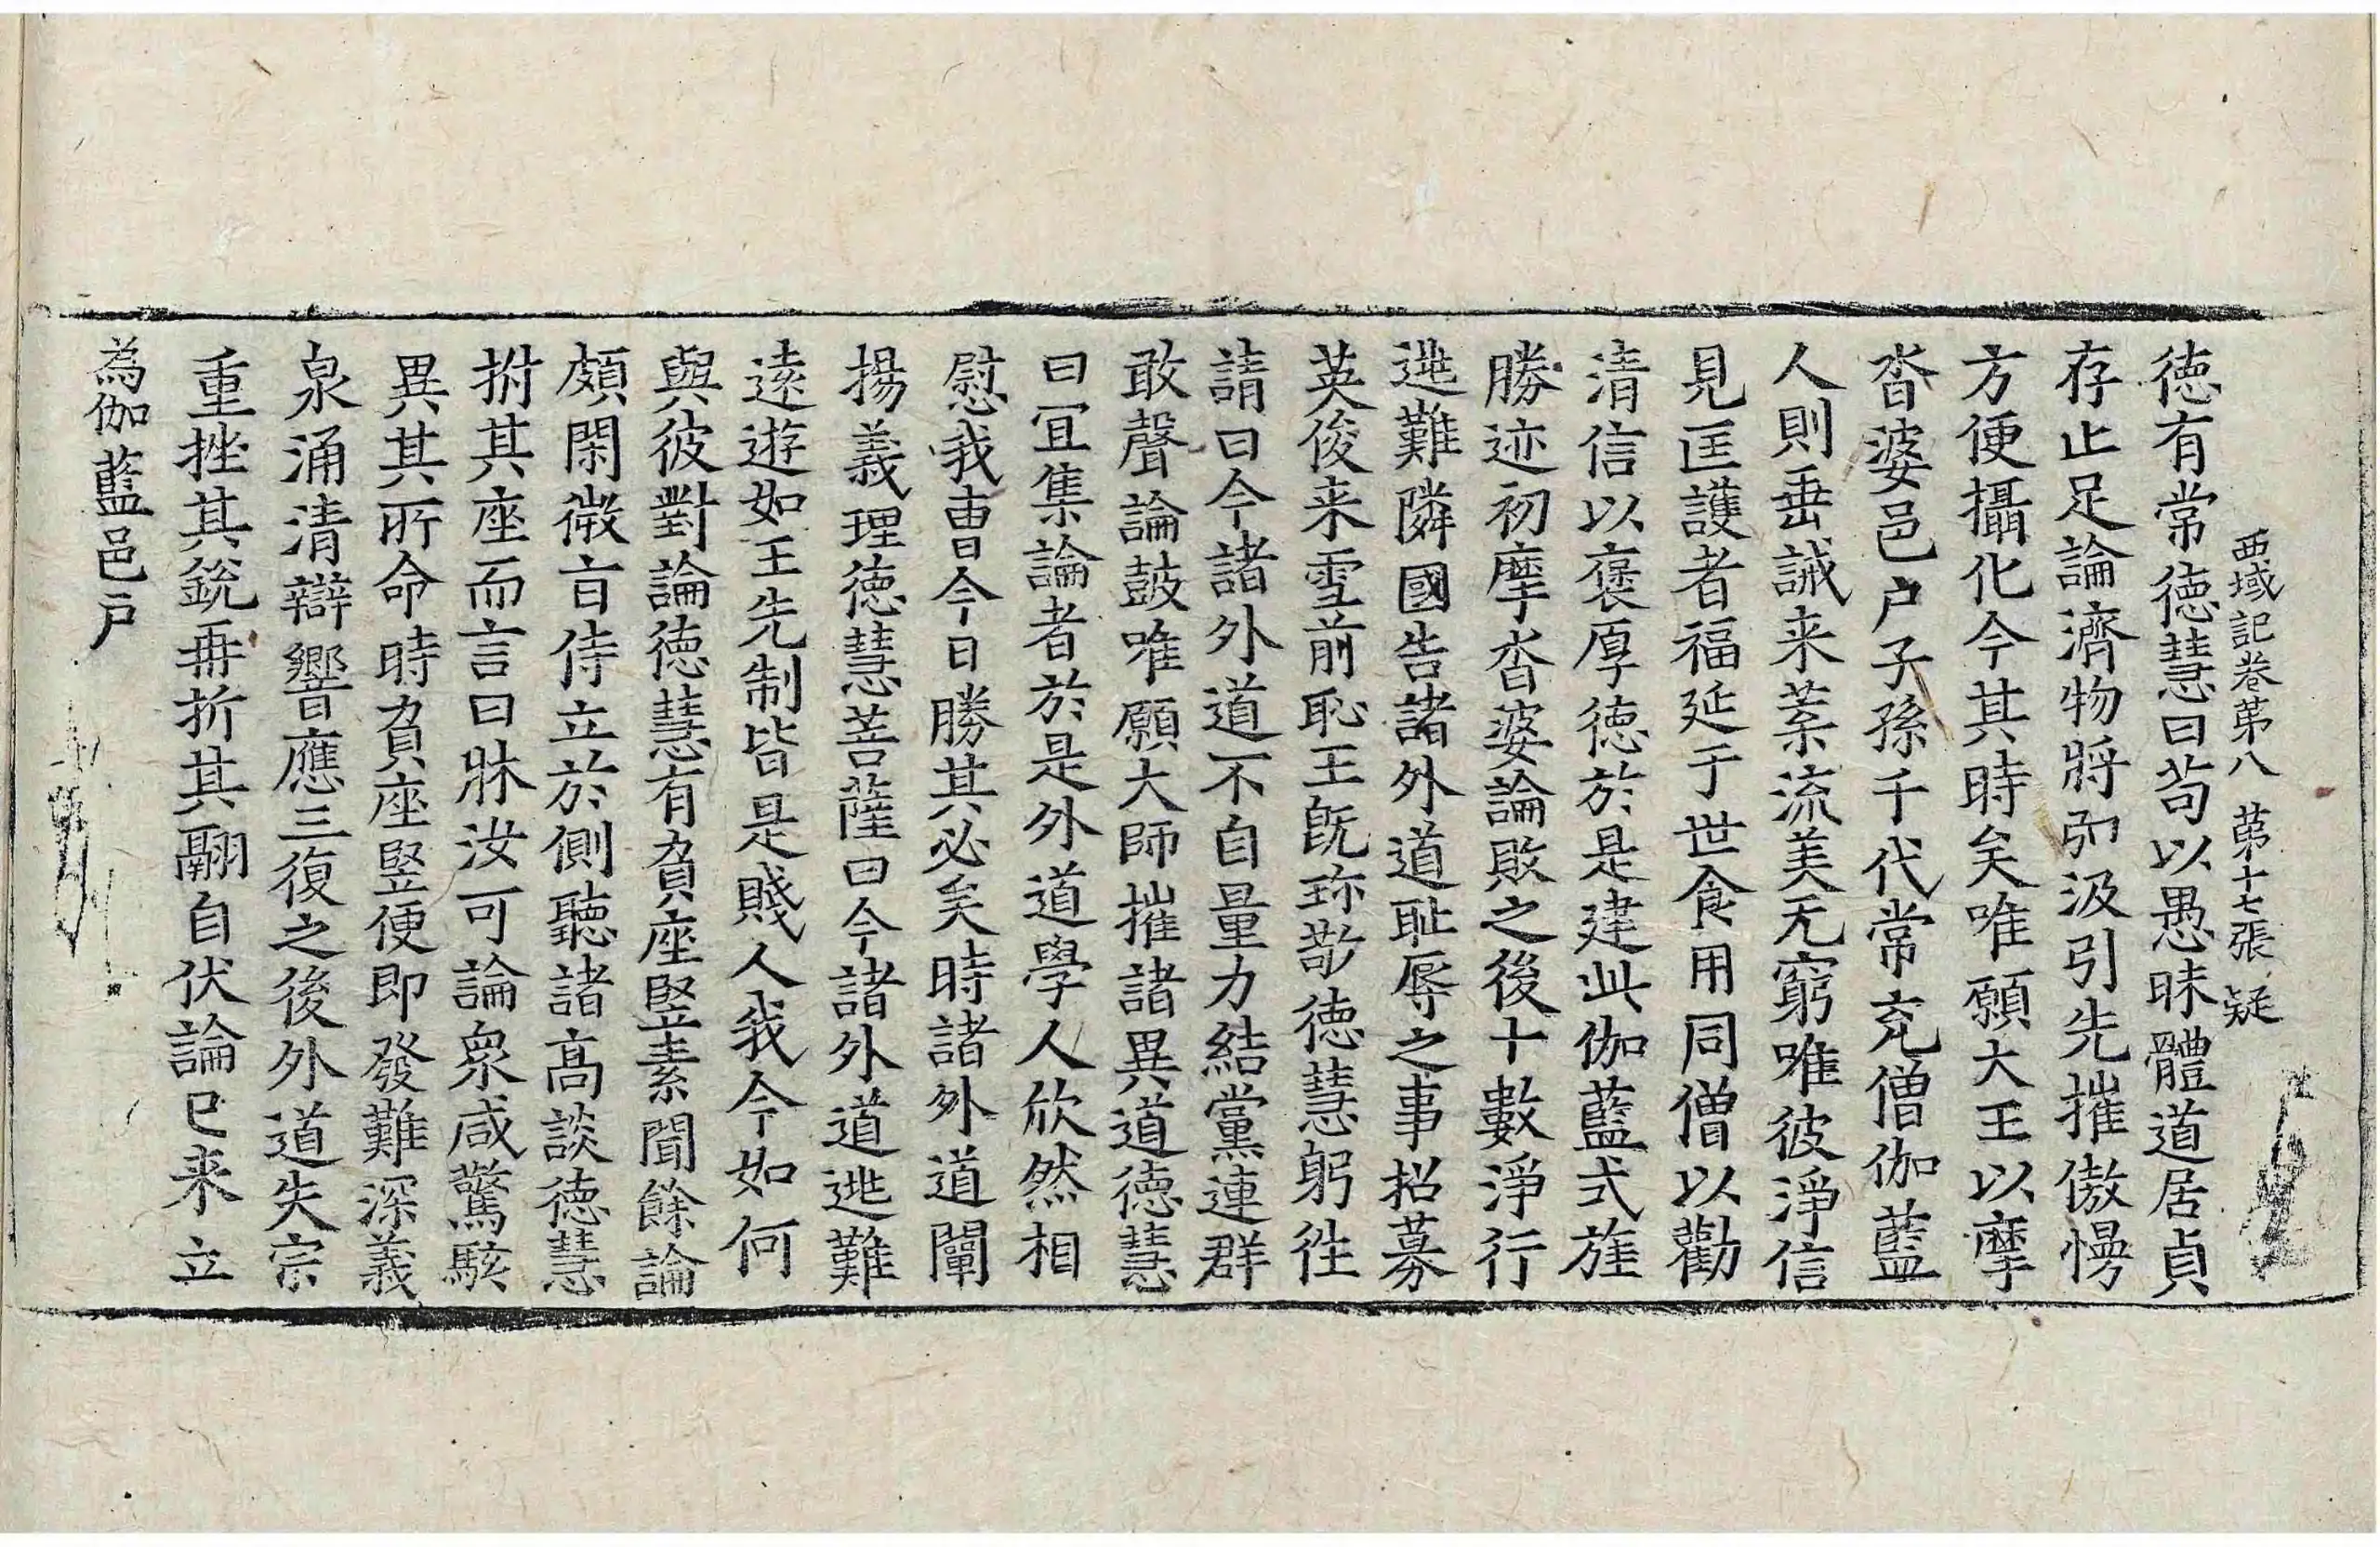 西域記卷苐八 苐十七張 疑
徳有常徳慧曰苟以愚昧體道居貞
存止足論濟物將弘汲引先摧傲慢
方便攝化今其時矣唯願大王以摩
沓婆邑户子孫千代常充僧伽藍
人則垂誡来葉流美无窮唯彼淨信
見匡護者福延于世食用同僧以勸
清信以褒厚徳於是建此伽藍式旌
勝迹初摩沓婆論敗之後十數淨行
逃難隣國告諸外道耻辱之事招募
英俊来雪前恥王旣珎敬徳慧躬往
請曰今諸外道不自量力結黨連群
敢聲論鼓唯願大師摧諸異道徳慧
曰宜集論者於是外道學人欣然相
慰我曹今日勝其必矣時諸外道闡
揚義理徳慧菩薩曰今諸外道逃難
逺遊如王先制皆是賤人我今如何
與彼對論徳慧有負座竪素聞餘論
頗閑微旨侍立於側聽諸髙談徳慧
拊其座而言曰牀汝可論衆咸驚駭
異其所命時負座竪便即發難深義
泉涌清辯響應三復之後外道失宗
重挫其銳再折其翮自伏論已来立
為伽藍邑戸